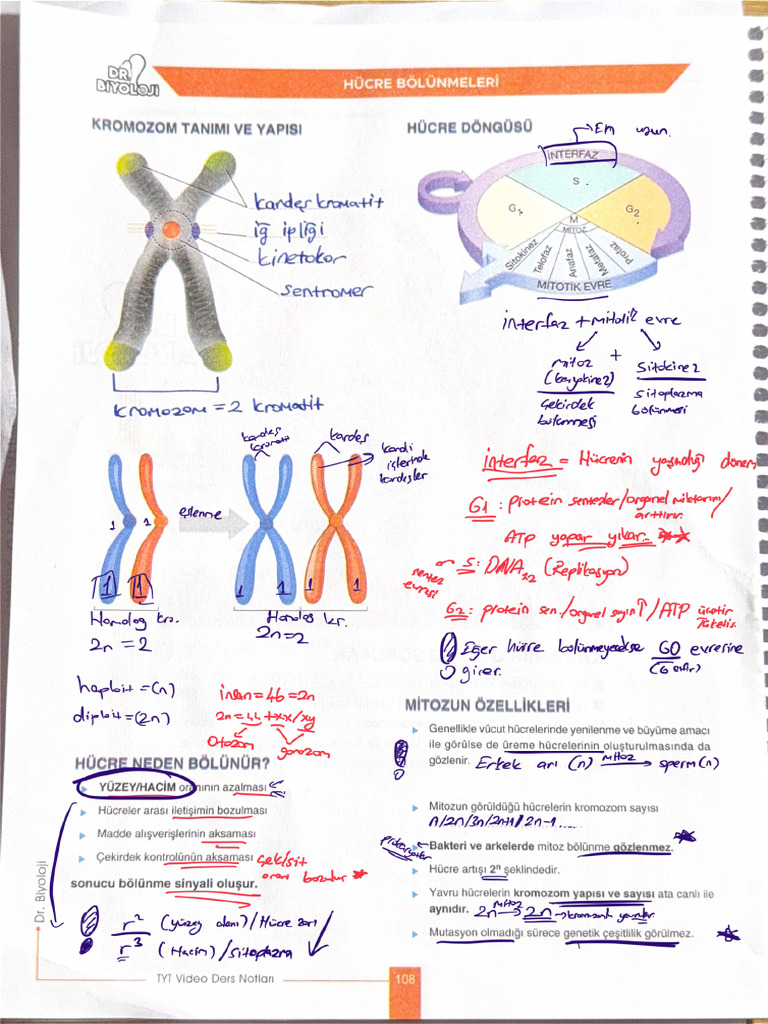 DR. BİYOLOJİ
HÜCRE BÖLÜNMELERİ
KROMOZOM TANIMI VE YAPISI
kardeş kromatit
iğ ipliği
kinetokor
sentromer
kromozom = 2 kromatit
kardeş kromatit
kardeş
kendi işlerinde kardeşler
1 2
eşlenme
1 1
1 1 1 1
Homolog kro.
2n = 2
Homolog kr.
2n = 2
haploit = (n)
diploit = (2n)
insan = 46 = 2n
2n = 44 + xx/xy
otozom
gonozom
HÜCRE NEDEN BÖLÜNÜR?
YÜZEY/HACİM oranının azalması
Hücreler arası iletişimin bozulması
Madde alışverişlerinin aksaması
Çekirdek kontrolünün aksaması çek/sit
oranı bozulur
sonucu bölünme sinyali oluşur.
r² (yüzey alanı) / Hücre zarı
r³ (Hacim) / sitoplazma
HÜCRE DÖNGÜSÜ
Em uzun.
İNTERFAZ
S
G₁
G₂
M
MİTOZ
Sitokinez
Telofaz
Anafaz
Metafaz
Profaz
MİTOTİK EVRE
interfaz + mitotik evre
mitoz (karyokinez) + sitokinez
çekirdek bölünmesi
sitoplazma bölünmesi
interfaz = Hücrenin yaşadığı dönem
G1: protein sentezler/organel miktarını/
arttırır.
ATP yapar yıkar.
S: DNA x2 (Replikasyon)
G2: protein sen./organel sayısı↑/ATP üretir
tüketir.
Eğer hücre bölünmeyecekse G0 evresine
girer.
MİTOZUN ÖZELLİKLERİ
Genellikle vücut hücrelerinde yenilenme ve büyüme amacı
ile görülse de üreme hücrelerinin oluşturulmasında da
gözlenir. Erkek arı (n) mitoz → sperm (n)
Mitozun görüldüğü hücrelerin kromozom sayısı
n/2n/3n/2n+1/2n-1.....
Bakteri ve arkelerde mitoz bölünme gözlenmez.
Hücre artışı 2ⁿ şeklindedir.
Yavru hücrelerin kromozom yapısı ve sayısı ata canlı ile
aynıdır. 2n mitoz → 2n
Mutasyon olmadığı sürece genetik çeşitlilik görülmez.
Dr. Biyoloji
TYT Video Ders Notları
108